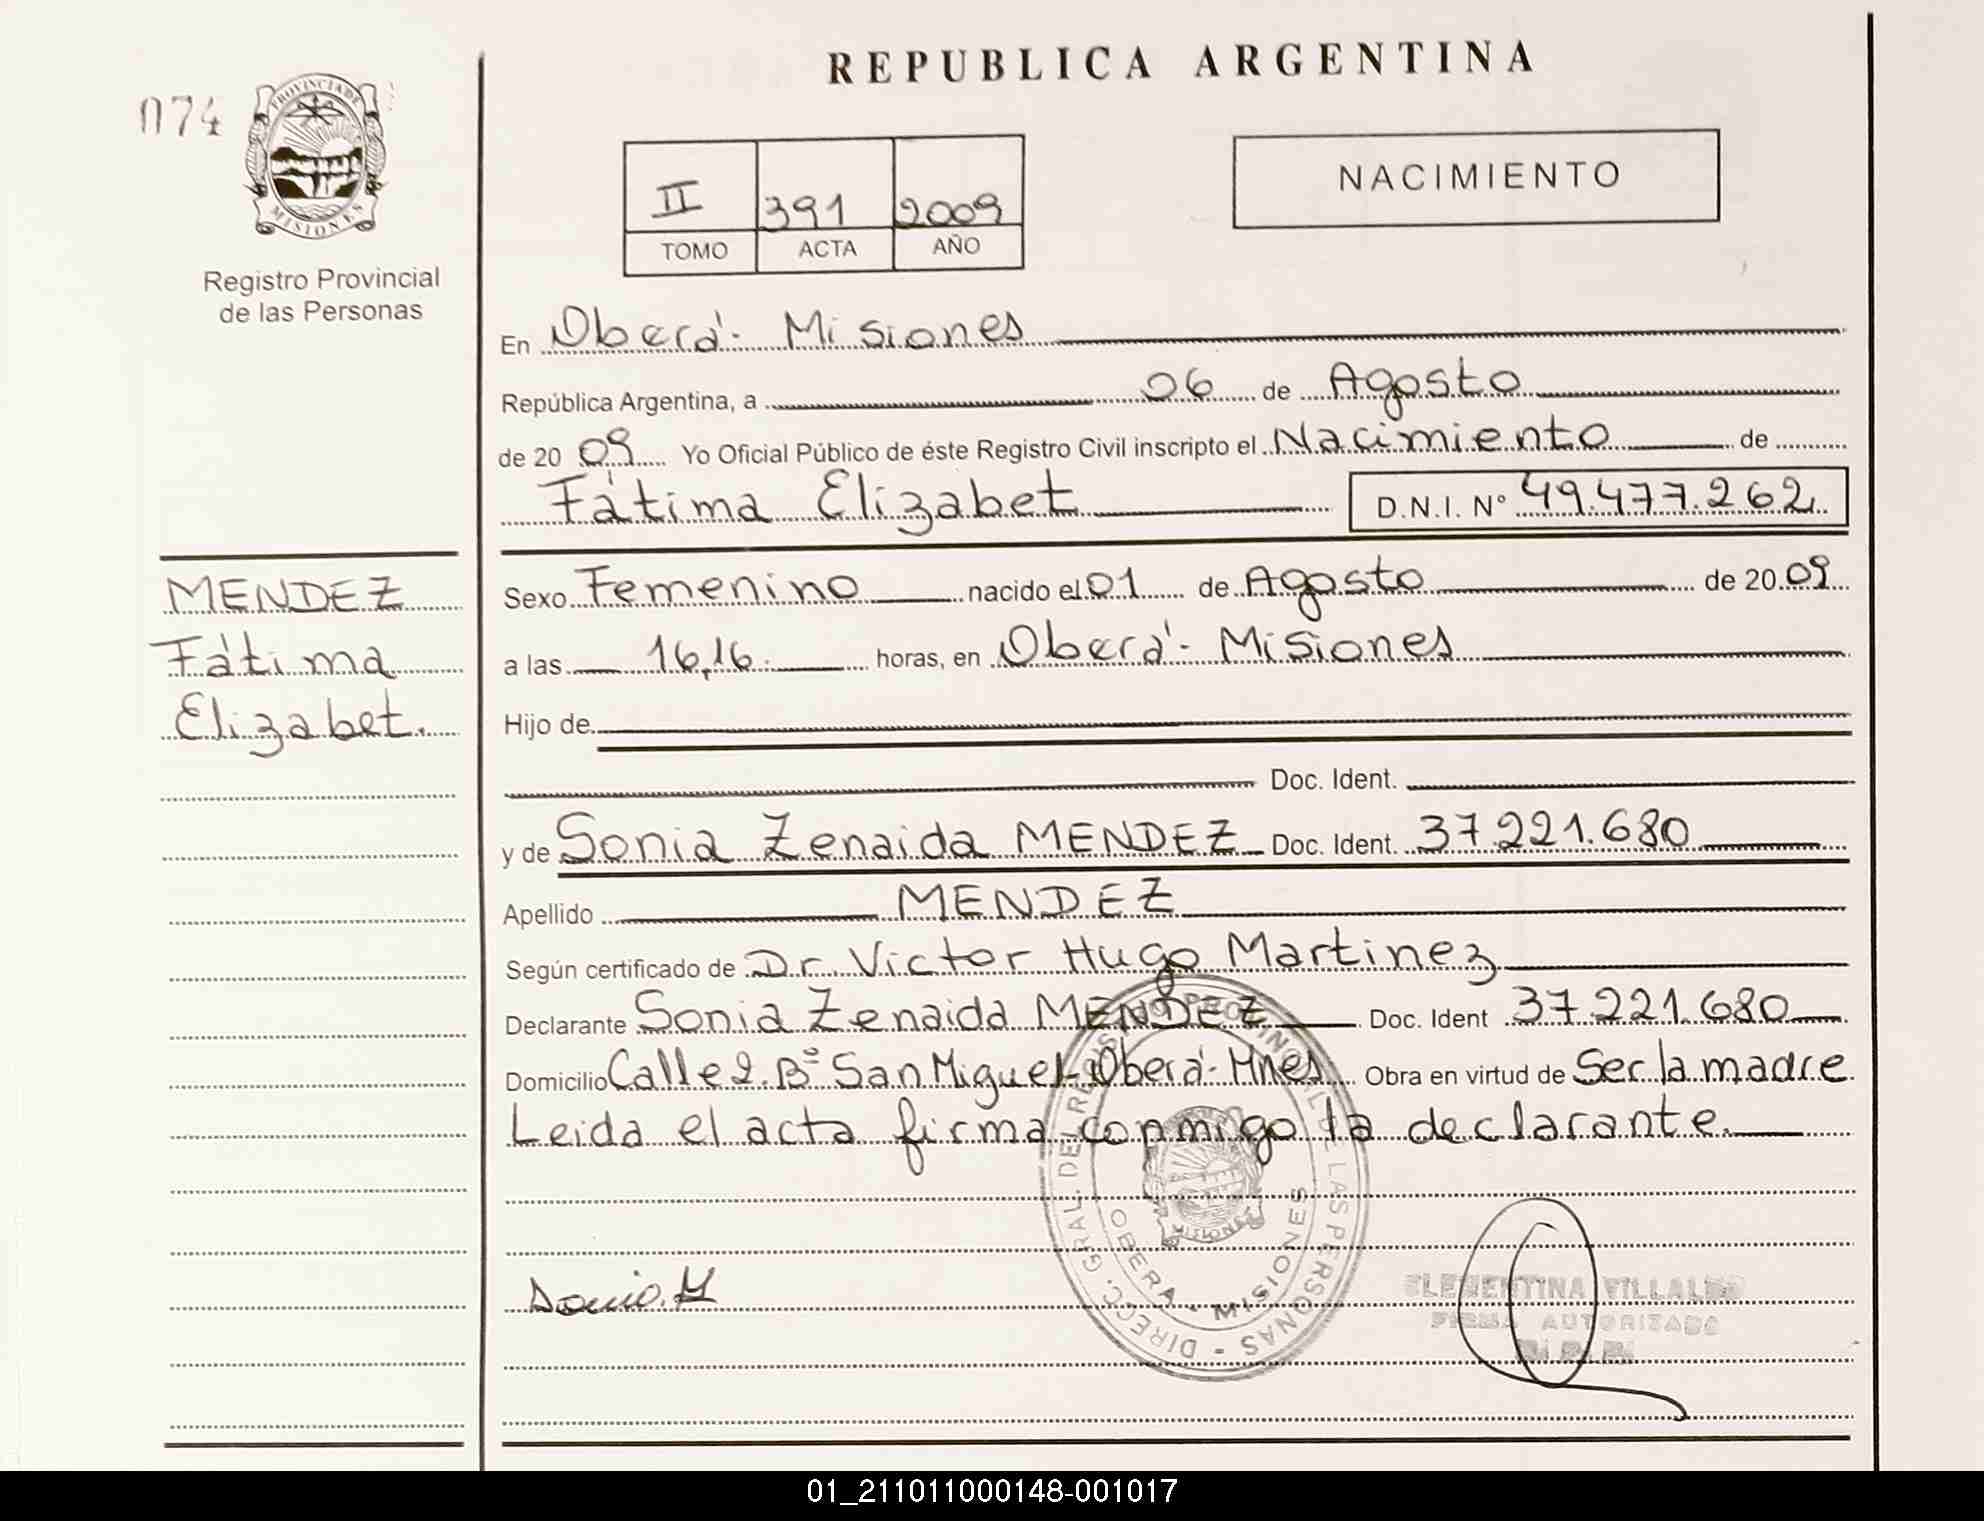 REPUBLICA ARGENTINA
074
PROVINCIA DE
MISIONES
Registro Provincial
de las Personas
II 391 2009
TOMO ACTA AÑO
NACIMIENTO
En Oberá - Misiones
República Argentina, a 06 de Agosto
de 20 09 Yo Oficial Público de éste Registro Civil inscripto el Nacimiento de
Fátima Elizabet D.N.I. Nº 49.477.262
MENDEZ
Fátima
Elizabet.
Sexo Femenino nacido el 01 de Agosto de 20 09
a las 16,16 horas, en Oberá - Misiones
Hijo de
Doc. Ident.
y de Sonia Zenaida MENDEZ Doc. Ident. 37.221.680
Apellido MENDEZ
Según certificado de Dr. Victor Hugo Martinez
Declarante Sonia Zenaida MENDEZ Doc. Ident 37.221.680
Domicilio Calle 2. Bº San Miguel - Oberá - Mnes Obra en virtud de Ser la madre
Leida el acta firma conmigo la declarante.
DIRECC. GRAL. DEL REGISTRO PROVINCIAL DE LAS PERSONAS -
MISIONES
OBERA - MISIONES
CLEMENTINA VILLALBA
FIRMA AUTORIZADA
01_211011000148-001017